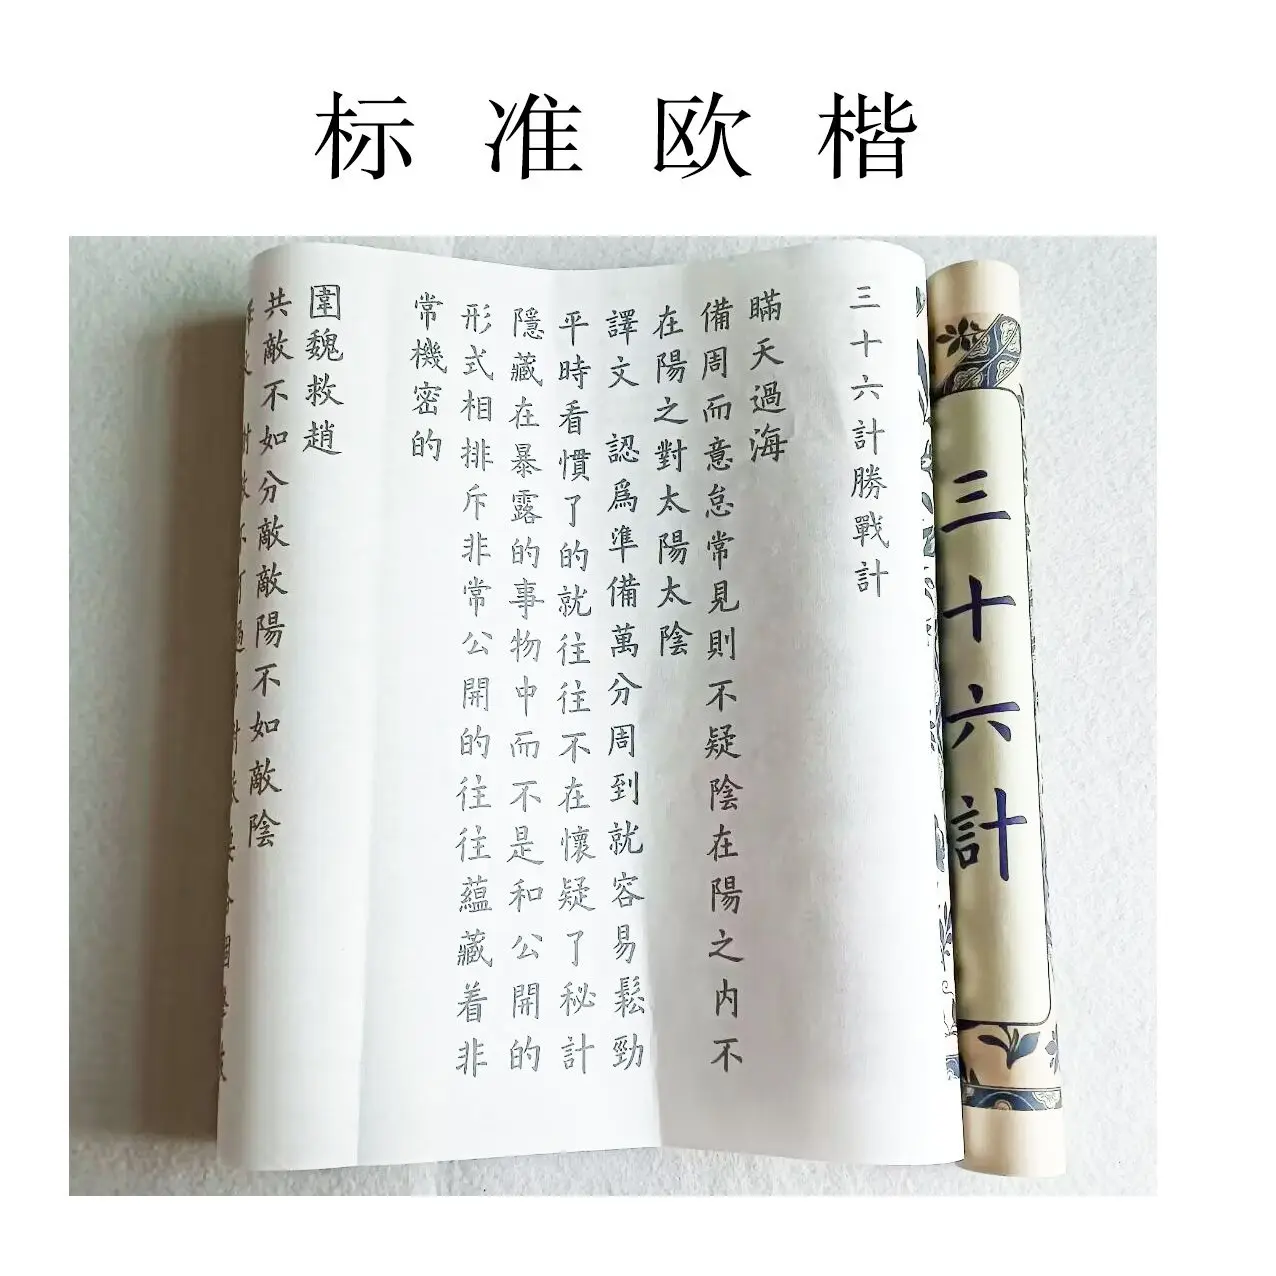 标准欧楷
三十六計
三十六計勝戰計
瞞天過海
備周而意怠常見則不疑陰在陽之内不
在陽之對太陽太陰
譯文 認爲準備萬分周到就容易鬆勁
平時看慣了的就往往不在懷疑了秘計
隱藏在暴露的事物中而不是和公開的
形式相排斥非常公開的往往蘊藏着非
常機密的
圍魏救趙
共敵不如分敵敵陽不如敵陰